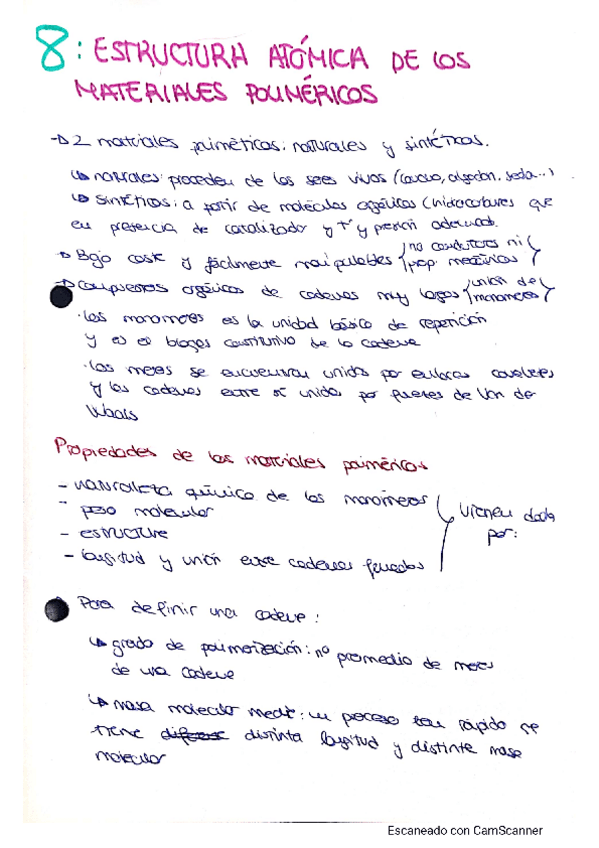 8: ESTRUCTURA ATÓMICA DE LOS
MATERIALES POLIMÉRICOS
→ 2 materiales poiméticos: naturales y sintéticos.
↳ naturales: proceden de los sees vivos (caucho, algodon, seda...)
↳ sintéticos: a partir de moléculas orgánicas (hidrocarburos que
en presencia de catalizador y Tª y presión adecuada.
→ Bajo coste y fácilmente manipulables (no conductores ni prop. mecánicas)
→ Compuestos orgánicos de cadenas muy largas (unión de monomeros)
· Los monomeros es la unidad básica de repetición
y es el bloque constitutivo de la cadena
· Los meros se encuentran unidos por enlaces covalentes
y las cadenas entre sí unidas por fuerzas de Van der
Waals
Propiedades de los materiales poiméricos
- naturaleza química de los monómeros
- peso molecular
- estructura
- longitud y unión entre cadenas formadas
vienen dada
por:
Para definir una cadena:
↳ grado de poimerización: nº promedio de meros
de una cadena
↳ masa molecular media: un proceso tan rápido se
tiene distinta longitud y distinta masa
molecular
Escaneado con CamScanner